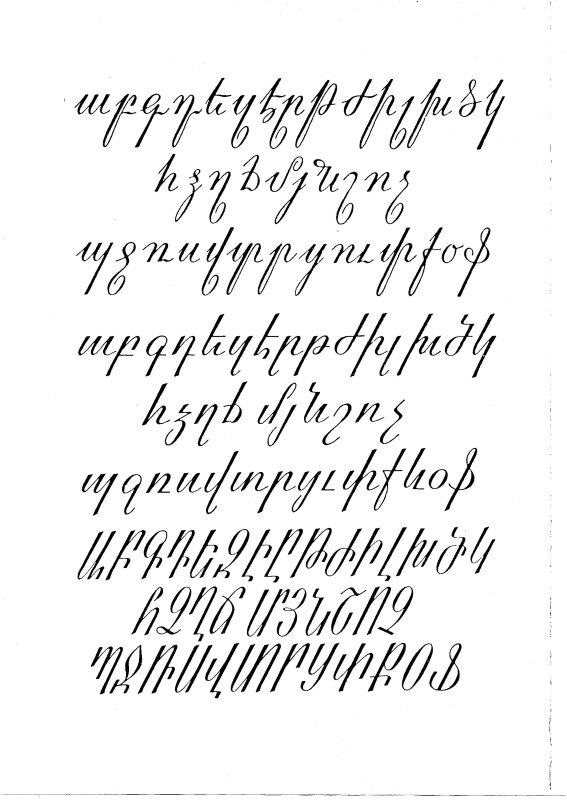 աբգդեզէըթժիլխծկ
հձղճմյնշոչ
պջռսվտրցուփքօֆ
աբգդեզէըթժիլխծկ
հձղճմյնշոչ
պջռսվտրցւփքևօֆ
ԱԲԳԴԵԶԷԸԹԺԻԼԽԾԿ
ՀՁՂՃՄՅՆՇՈՉ
ՊՋՌՍՎՏՐՑՓՔՕՖ